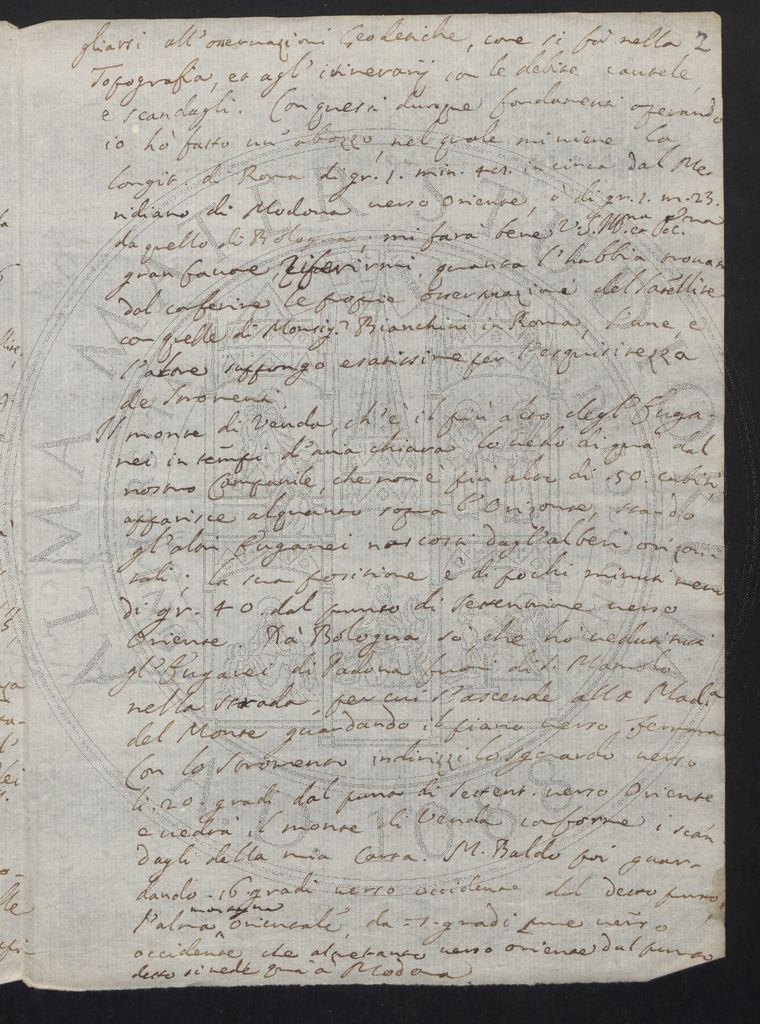 gliarsi all'osservazioni Geodetiche, come si fà nella 2
Topografia, et agl'itinerarij con le debite cautele,
e scandagli. Con questi dunque fondamenti operando
io hò fatto un'abozzo, nel quale mi viene la
longit. di Roma di gr. 1. min. in circa dal Me-
ridiano di Modona verso Oriente, ò di gr. 1. m. 23.
da quello di Bologna, mi farai bene V.S.
gran favore riferirmi, quanta l'habbia trovata
dal conferire le proprie osservazioni de Satelliti
con quelle di Monsig.r Bianchini in Roma, l'une, e
l'altre suppongo esatissime per l'esquisitezza
de stromenti
Il monte di Venda, ch'è il più alto degl'Euga-
nei in tempi d'aria chiara lo vedo di quà dal
nostro Campanile, che non è più alto di 50. cubiti
apparisce alquanto sopra l'Orizonte, stando
gl'altri Euganei nascosti dagl'alberi orizon-
tali; la sua positione è di pochi minuti meno
di gr. 40. dal punto di settentrione verso
Oriente. Dà Bologna sò che hò veduti
gl'Euganei di Padova fuori di S. Mamolo
nella strada, per cui s'ascende alla Mad.a
del Monte guardando il piano verso Ferrara
Con lo stromento indirizzi lo sguardo verso
li 20. gradi dal punto di settent. verso Oriente
e vedrà il monte di Venda conforme i scan
dagli della mia Carta. M. Baldo poi guar-
dando 16 gradi verso occidente dal detto punto
montagna
l'altra orientale, da gradi pure verso
occidente che altretanto verso oriente dal punto
detto si vede quà à Modona